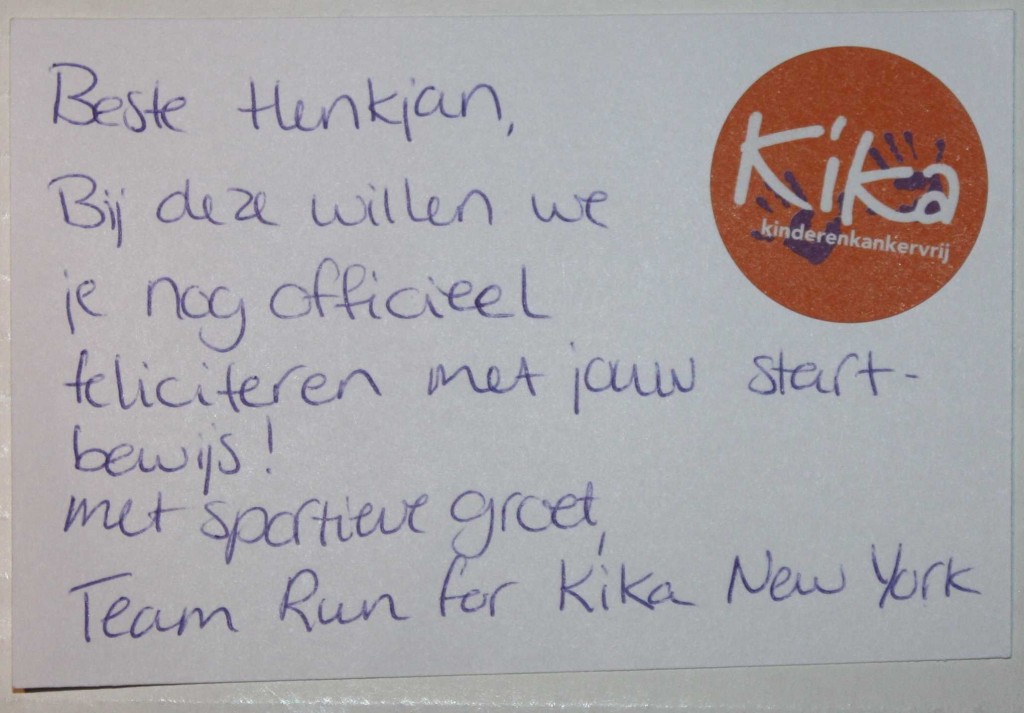 Beste Henkjan,
Bij deze willen we
je nog officieel
feliciteren met jouw start-
bewijs!
met sportieve groet,
Team Run for Kika New York
Kika
kinderenkankervrij